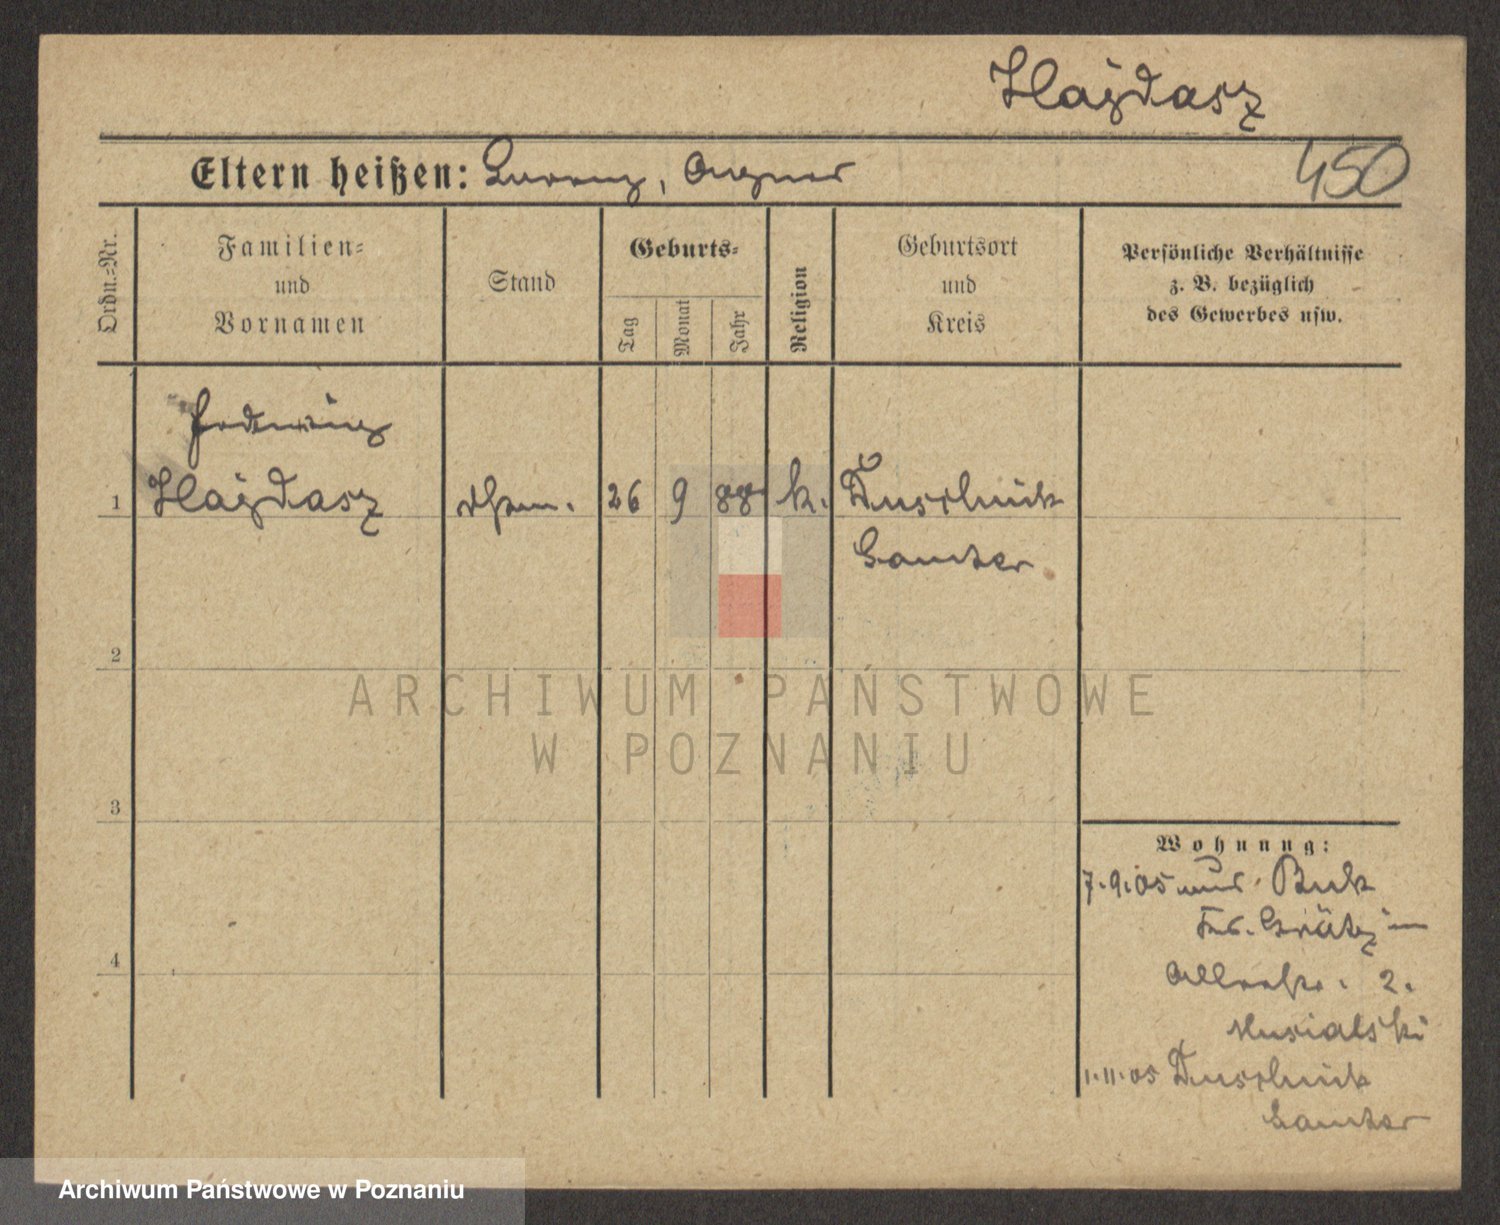 Hajdasz
Eltern heißen: Lorenz, Agnes
450
Ordn.-Nr.
Familien-
und
Vornamen
Stand
Geburts-
Tag
Monat
Jahr
Religion
Geburtsort
und
Kreis
Persönliche Verhältnisse
z. B. bezüglich
des Gewerbes usw.
Hedwig
1 Hajdasz 26 9 88 k. Duschnik
Samter
2
ARCHIWUM PAŃSTWOWE
W POZNANIU
3
Wohnung:
7.9.05 Buk
Kr. Grätz
2.
Musialski
4
1.11.05 Duschnik
Samter
Archiwum Państwowe w Poznaniu